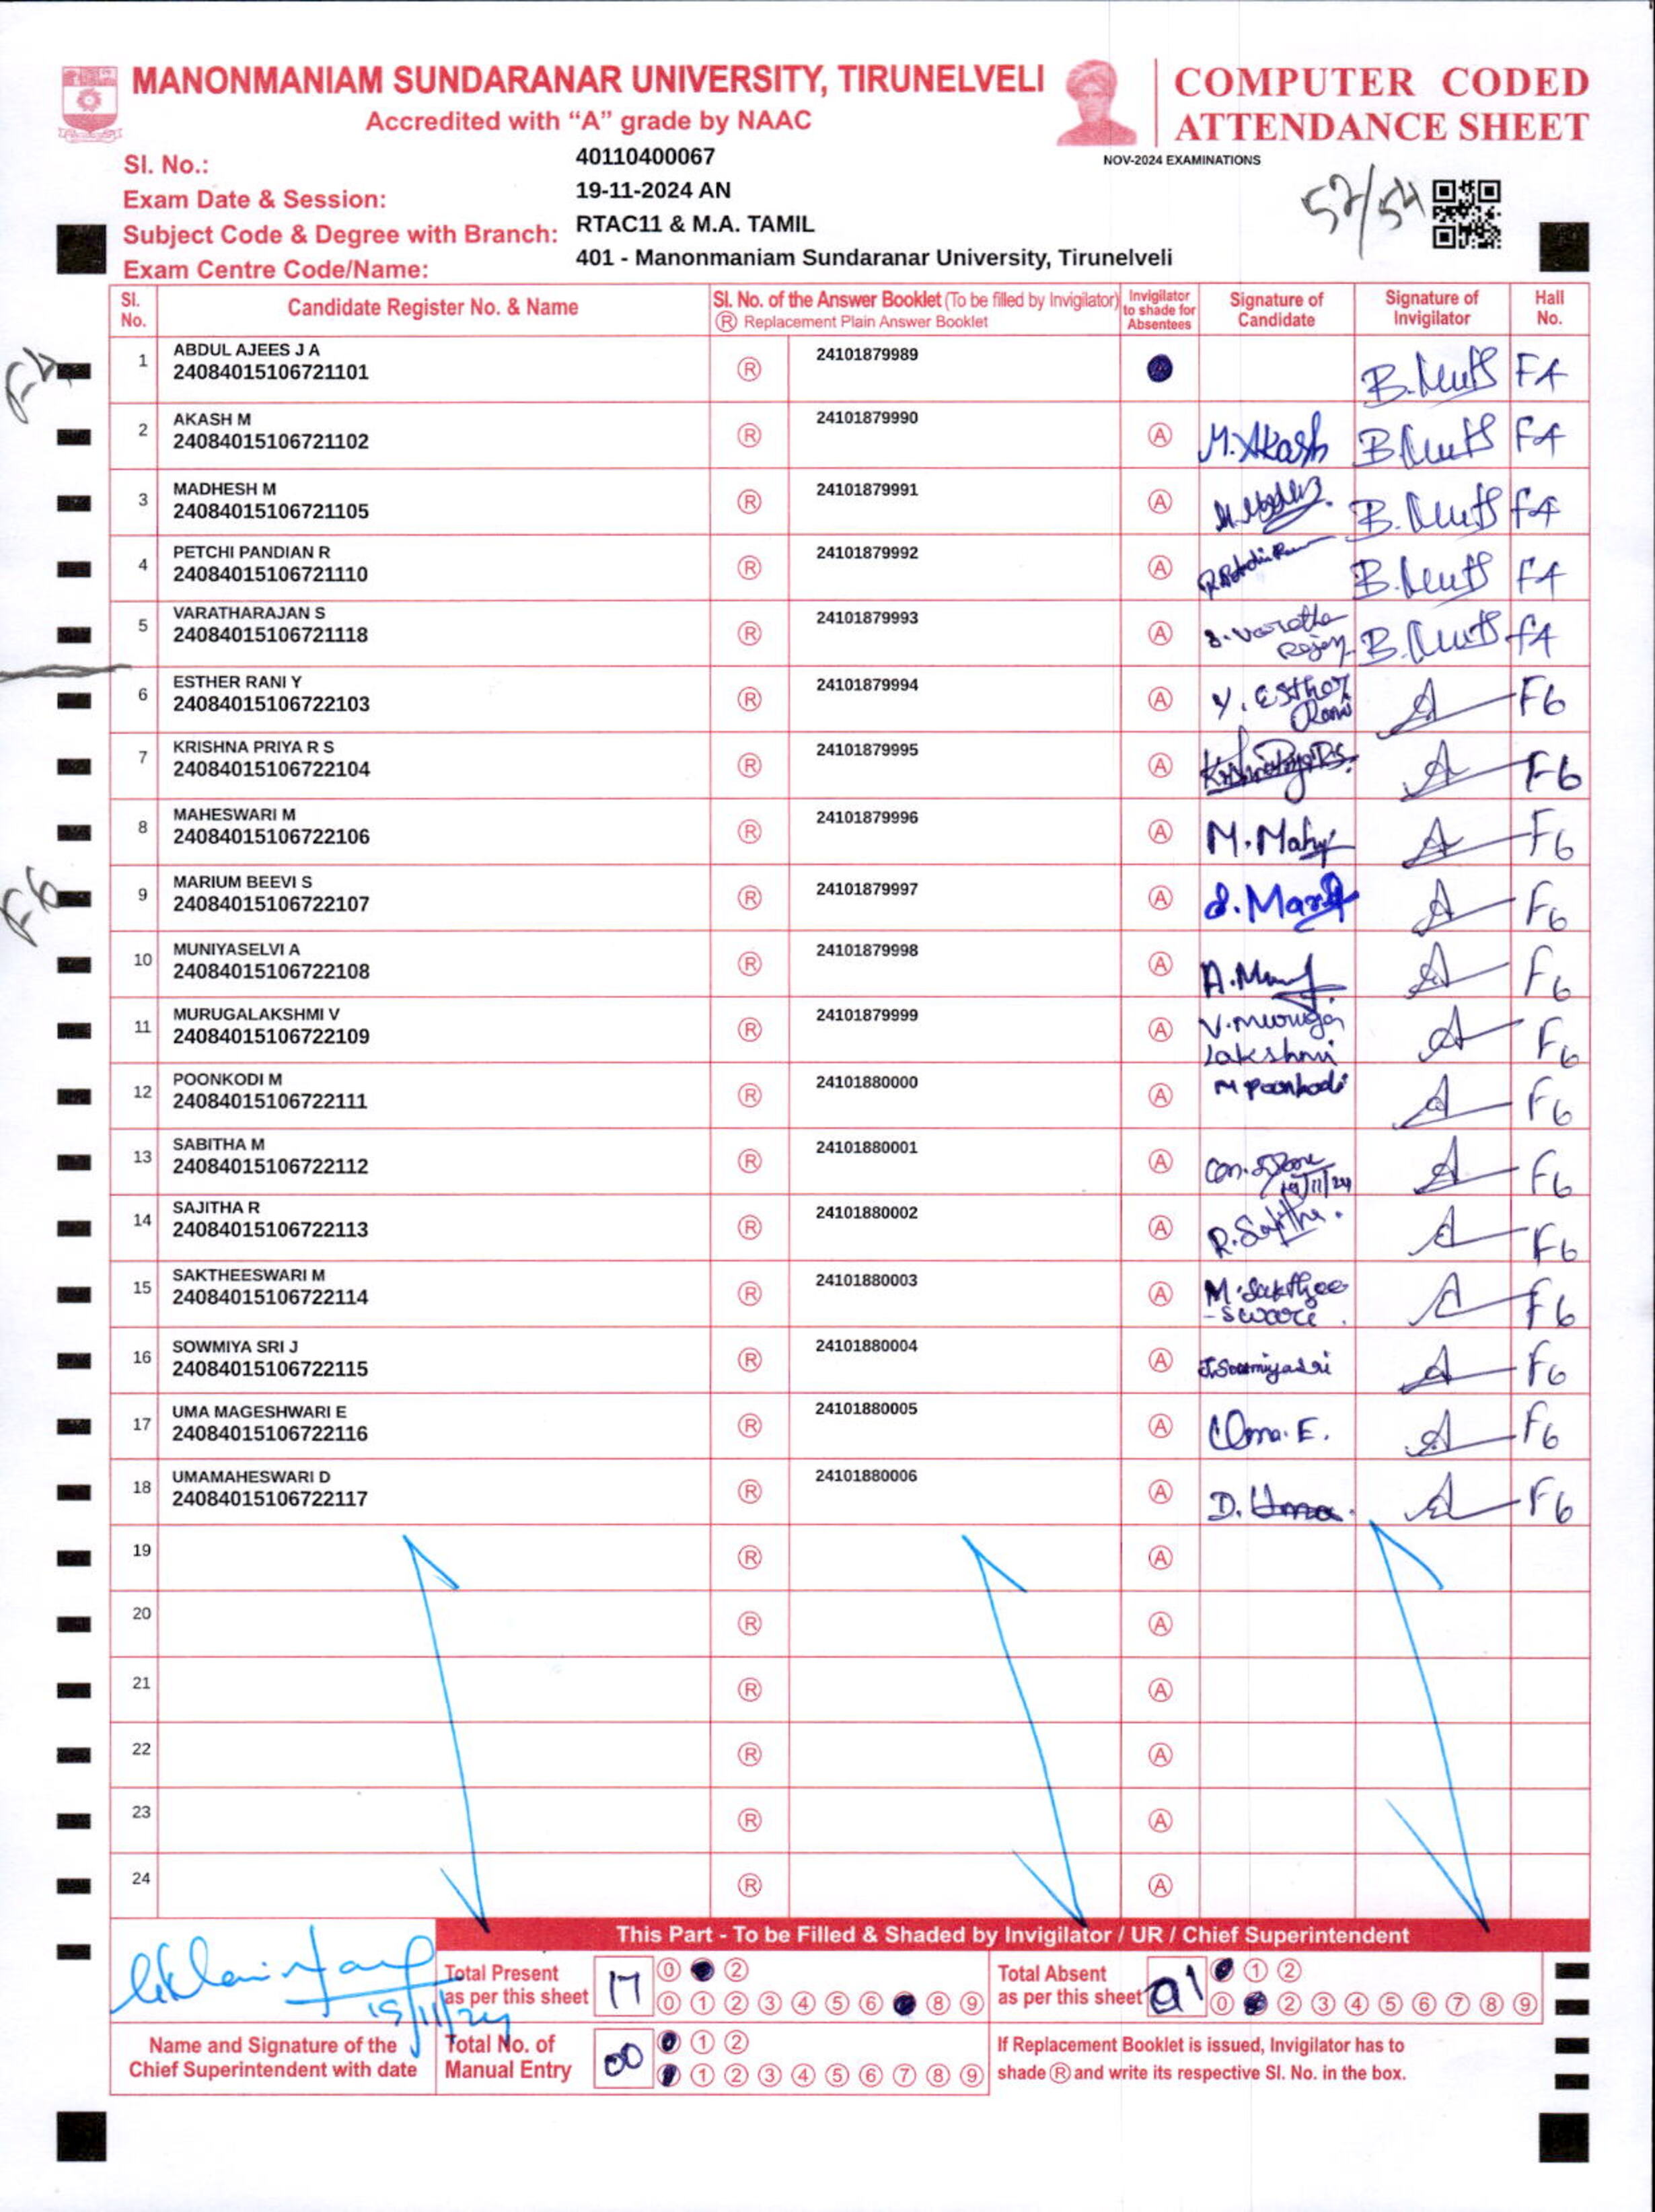 MANONMANIAM SUNDARANAR UNIVERSITY, TIRUNELVELI
Accredited with “A” grade by NAAC
COMPUTER CODED
ATTENDANCE SHEET
NOV-2024 EXAMINATIONS
Sl. No.: 40110400067
Exam Date & Session: 19-11-2024 AN
Subject Code & Degree with Branch: RTAC11 & M.A. TAMIL
Exam Centre Code/Name: 401 - Manonmaniam Sundaranar University, Tirunelveli
Sl. No. Candidate Register No. & Name Sl. No. of the Answer Booklet (To be filled by Invigilator) Ⓡ Replacement Plain Answer Booklet Invigilator to shade for Absentees Signature of Candidate Signature of Invigilator Hall No.
1 ABDUL AJEES J A Ⓡ 24101879989 F4
24084015106721101
2 AKASH M Ⓡ 24101879990 Ⓐ M.Akash F4
24084015106721102
3 MADHESH M Ⓡ 24101879991 Ⓐ F4
24084015106721105
4 PETCHI PANDIAN R Ⓡ 24101879992 Ⓐ F4
24084015106721110
5 VARATHARAJAN S Ⓡ 24101879993 Ⓐ F4
24084015106721118
6 ESTHER RANI Y Ⓡ 24101879994 Ⓐ Y. Esther Rani F6
24084015106722103
7 KRISHNA PRIYA R S Ⓡ 24101879995 Ⓐ F6
24084015106722104
8 MAHESWARI M Ⓡ 24101879996 Ⓐ M. Mahy F6
24084015106722106
9 MARIUM BEEVI S Ⓡ 24101879997 Ⓐ F6
24084015106722107
10 MUNIYASELVI A Ⓡ 24101879998 Ⓐ F6
24084015106722108
11 MURUGALAKSHMI V Ⓡ 24101879999 Ⓐ V. Muruga lakshmi F6
24084015106722109
12 POONKODI M Ⓡ 24101880000 Ⓐ M Poonkodi F6
24084015106722111
13 SABITHA M Ⓡ 24101880001 Ⓐ 19/11/24 F6
24084015106722112
14 SAJITHA R Ⓡ 24101880002 Ⓐ R. Sajitha. F6
24084015106722113
15 SAKTHEESWARI M Ⓡ 24101880003 Ⓐ M. Sakthee -swari. F6
24084015106722114
16 SOWMIYA SRI J Ⓡ 24101880004 Ⓐ J.Sowmiya Sri F6
24084015106722115
17 UMA MAGESHWARI E Ⓡ 24101880005 Ⓐ Uma. E. F6
24084015106722116
18 UMAMAHESWARI D Ⓡ 24101880006 Ⓐ D. Uma. F6
24084015106722117
19 Ⓡ Ⓐ
20 Ⓡ Ⓐ
21 Ⓡ Ⓐ
22 Ⓡ Ⓐ
23 Ⓡ Ⓐ
24 Ⓡ Ⓐ
This Part - To be Filled & Shaded by Invigilator / UR / Chief Superintendent
Total Present as per this sheet 17 0 2
0 1 2 3 4 5 6 8 9
Total Absent as per this sheet 01 1 2
0 2 3 4 5 6 7 8 9
19/11/24
Name and Signature of the Chief Superintendent with date
Total No. of Manual Entry 00 1 2
1 2 3 4 5 6 7 8 9
If Replacement Booklet is issued, Invigilator has to
shade Ⓡ and write its respective Sl. No. in the box.